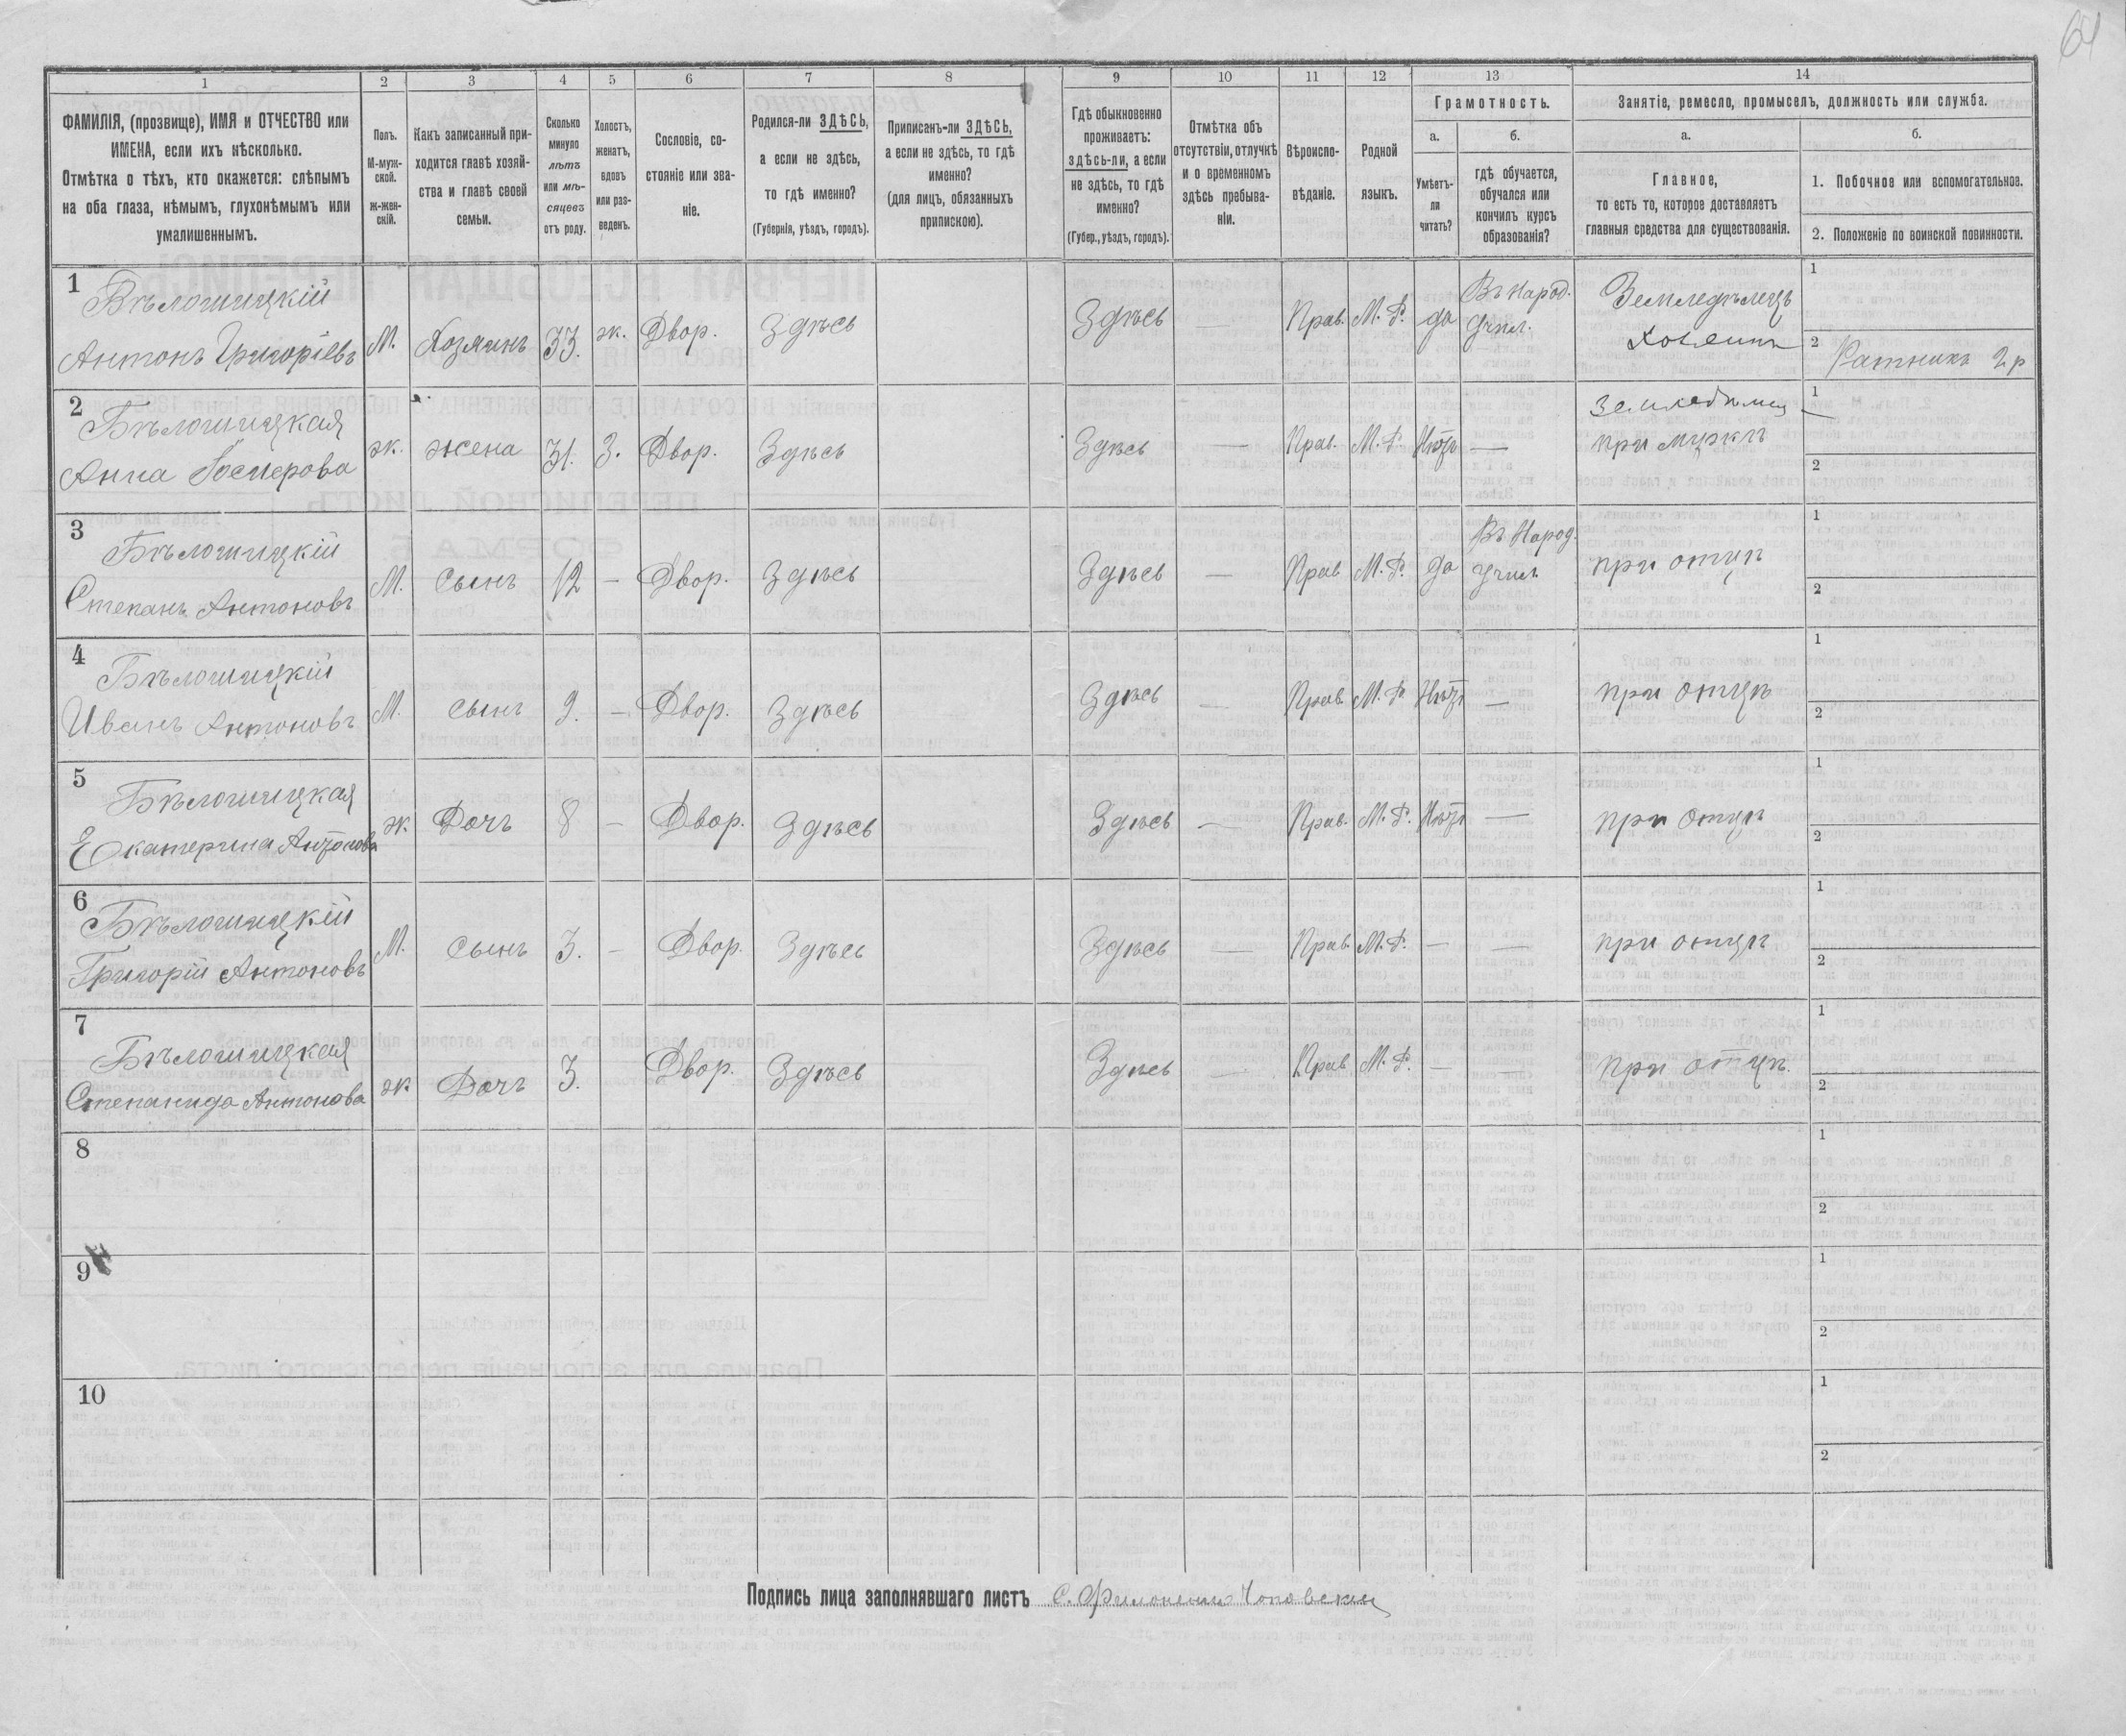 64
1 2 3 4 5 6 7 8 9 10 11 12 13 14
ФАМИЛІЯ, (прозвище), ИМЯ и ОТЧЕСТВО или
ИМЕНА, если ихъ нѣсколько.
Отмѣтка о тѣхъ, кто окажется: слѣпымъ
на оба глаза, нѣмымъ, глухонѣмымъ или
умалишеннымъ.
Полъ.
М-муж-
ской.
ж-жен-
скій.
Какъ записанный при-
ходится главѣ хозяй-
ства и главѣ своей
семьи.
Сколько
минуло
лѣтъ
или мѣ-
сяцевъ
отъ роду.
Холостъ,
женатъ,
вдовъ
или раз-
веденъ.
Сословіе, со-
стояніе или зва-
ніе.
Родился-ли ЗДѢСЬ,
а если не здѣсь,
то гдѣ именно?
(Губернія, уѣздъ, городъ).
Приписанъ-ли ЗДѢСЬ,
а если не здѣсь, то гдѣ
именно?
(для лицъ, обязанныхъ
припискою).
Гдѣ обыкновенно
проживаетъ:
здѣсь-ли, а если
не здѣсь, то гдѣ
именно?
(Губер., уѣздъ, городъ).
Отмѣтка объ
отсутствіи, отлучкѣ
и о временномъ
здѣсь пребыва-
ніи.
Вѣроиспо-
вѣданіе.
Родной
языкъ.
Грамотность.
а.
Умѣетъ-
ли
читать?
б.
гдѣ обучается,
обучался или
кончилъ курсъ
образованія?
Занятіе, ремесло, промыселъ, должность или служба.
а.
Главное,
то есть то, которое доставляетъ
главныя средства для существованія.
б.
1. Побочное или вспомогательное.
2. Положеніе по воинской повинности.
1 Бѣлошицкій
Антонъ Григоріевъ М. Хозяинъ 33. ж. Двор. Здѣсь Здѣсь — Прав. М. Р. да Въ Народ. Учил. Земледѣлецъ Хозяинъ 1
2 Ратникъ 2 р
2 Бѣлошицкая
Анна ж. жена 31. З. Двор. Здѣсь Здѣсь — Прав. М. Р. Нѣтъ — при мужѣ 1 —
2
3 Бѣлошицкій
Степанъ Антоновъ М. Сынъ 12 — Двор. Здѣсь Здѣсь — Прав М. Р. да Въ Народ. Учил. при отцѣ 1
2
4 Бѣлошицкій
Иванъ Антоновъ М. сынъ 9. — Двор. Здѣсь Здѣсь — Прав. М. Р. Нѣтъ — при отцѣ 1
2
5 Бѣлошицкая
Екатерина Антонова ж. Дочь 8 — Двор. Здѣсь Здѣсь — Прав. М. Р. Нѣтъ — при отцѣ 1
2
6 Бѣлошицкій
Григорій Антоновъ М. сынъ 3. — Двор. Здѣсь Здѣсь — Прав. М. Р. — — при отцѣ 1
2
7 Бѣлошицкая
Степанида Антонова ж Дочь 3. Двор. Здѣсь Здѣсь — Прав М. Р. — — при отцѣ. 1
2
8 1
2
9 1
2
10 1
2
Подпись лица заполнявшаго листъ С.